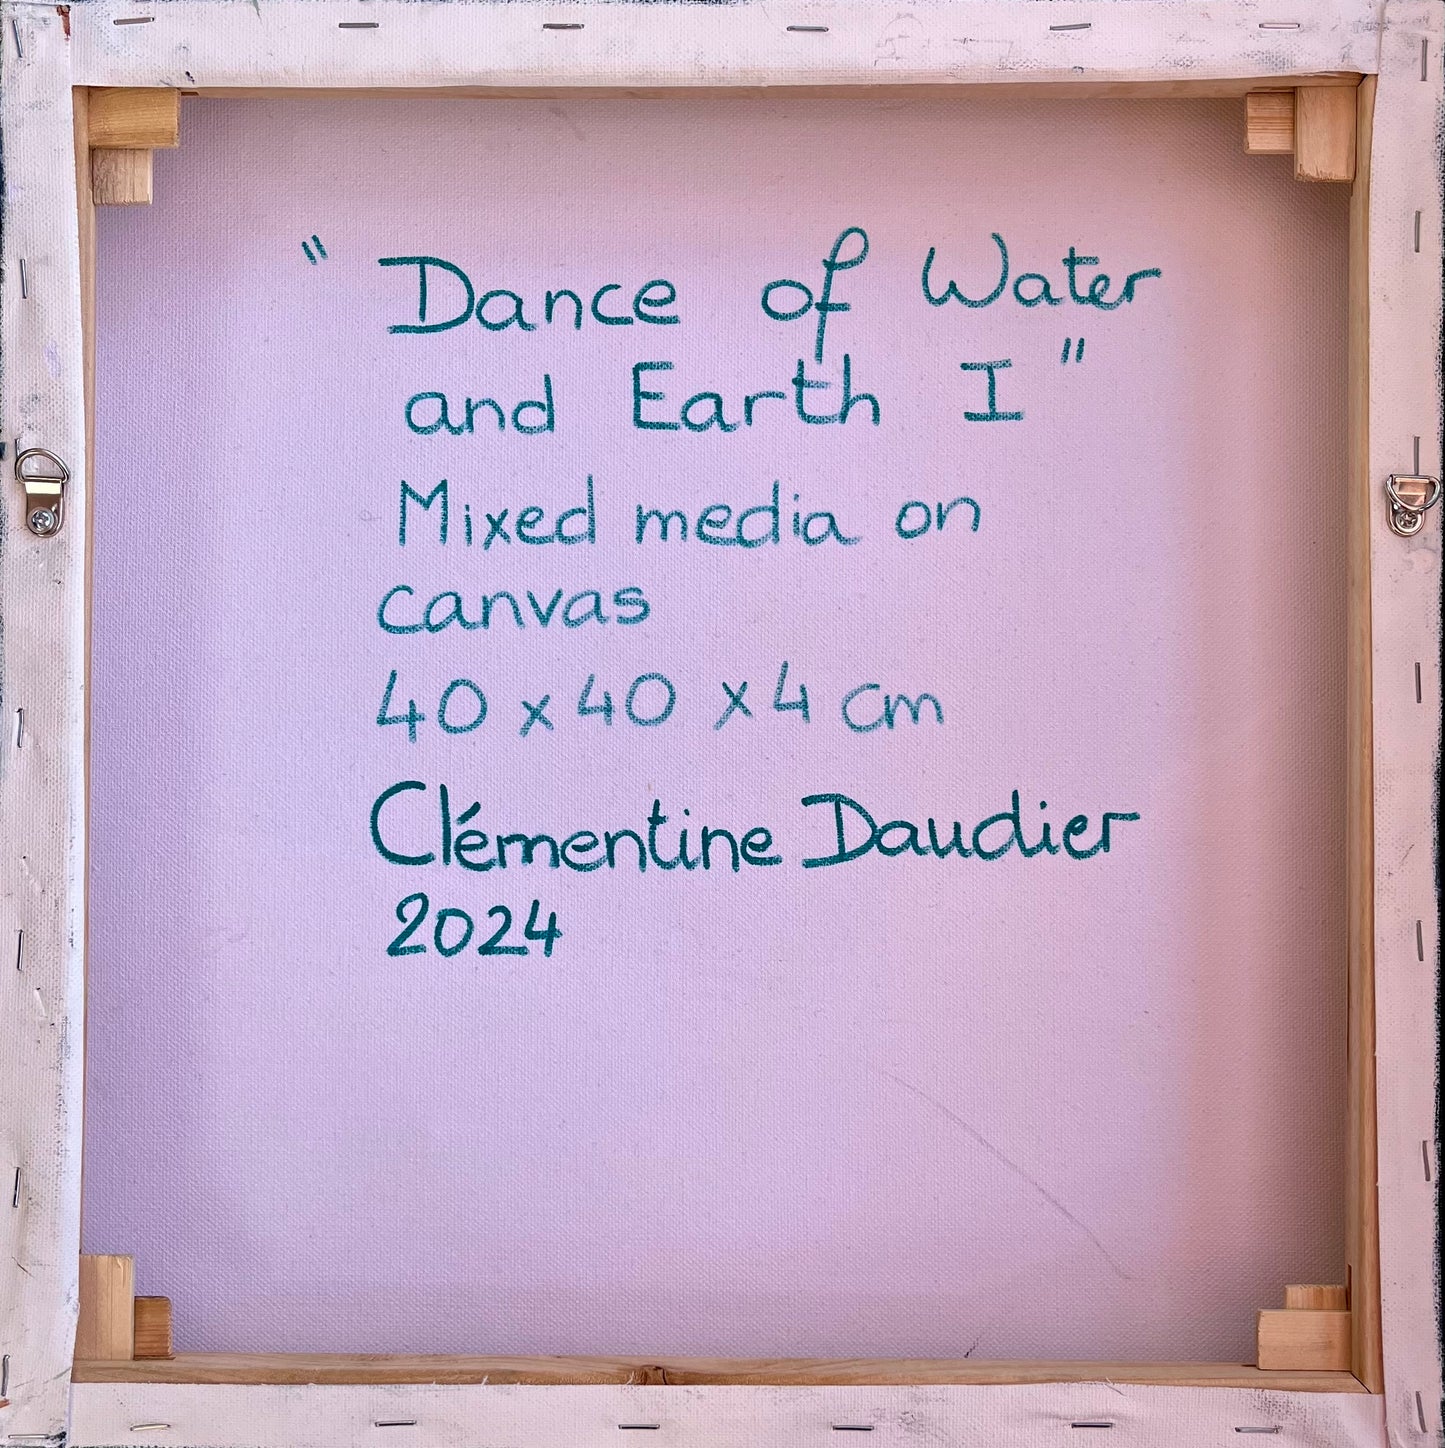 " Dance of Water
and Earth I "
Mixed media on
canvas
40 x 40 x 4 cm
Clémentine Daudier
2024